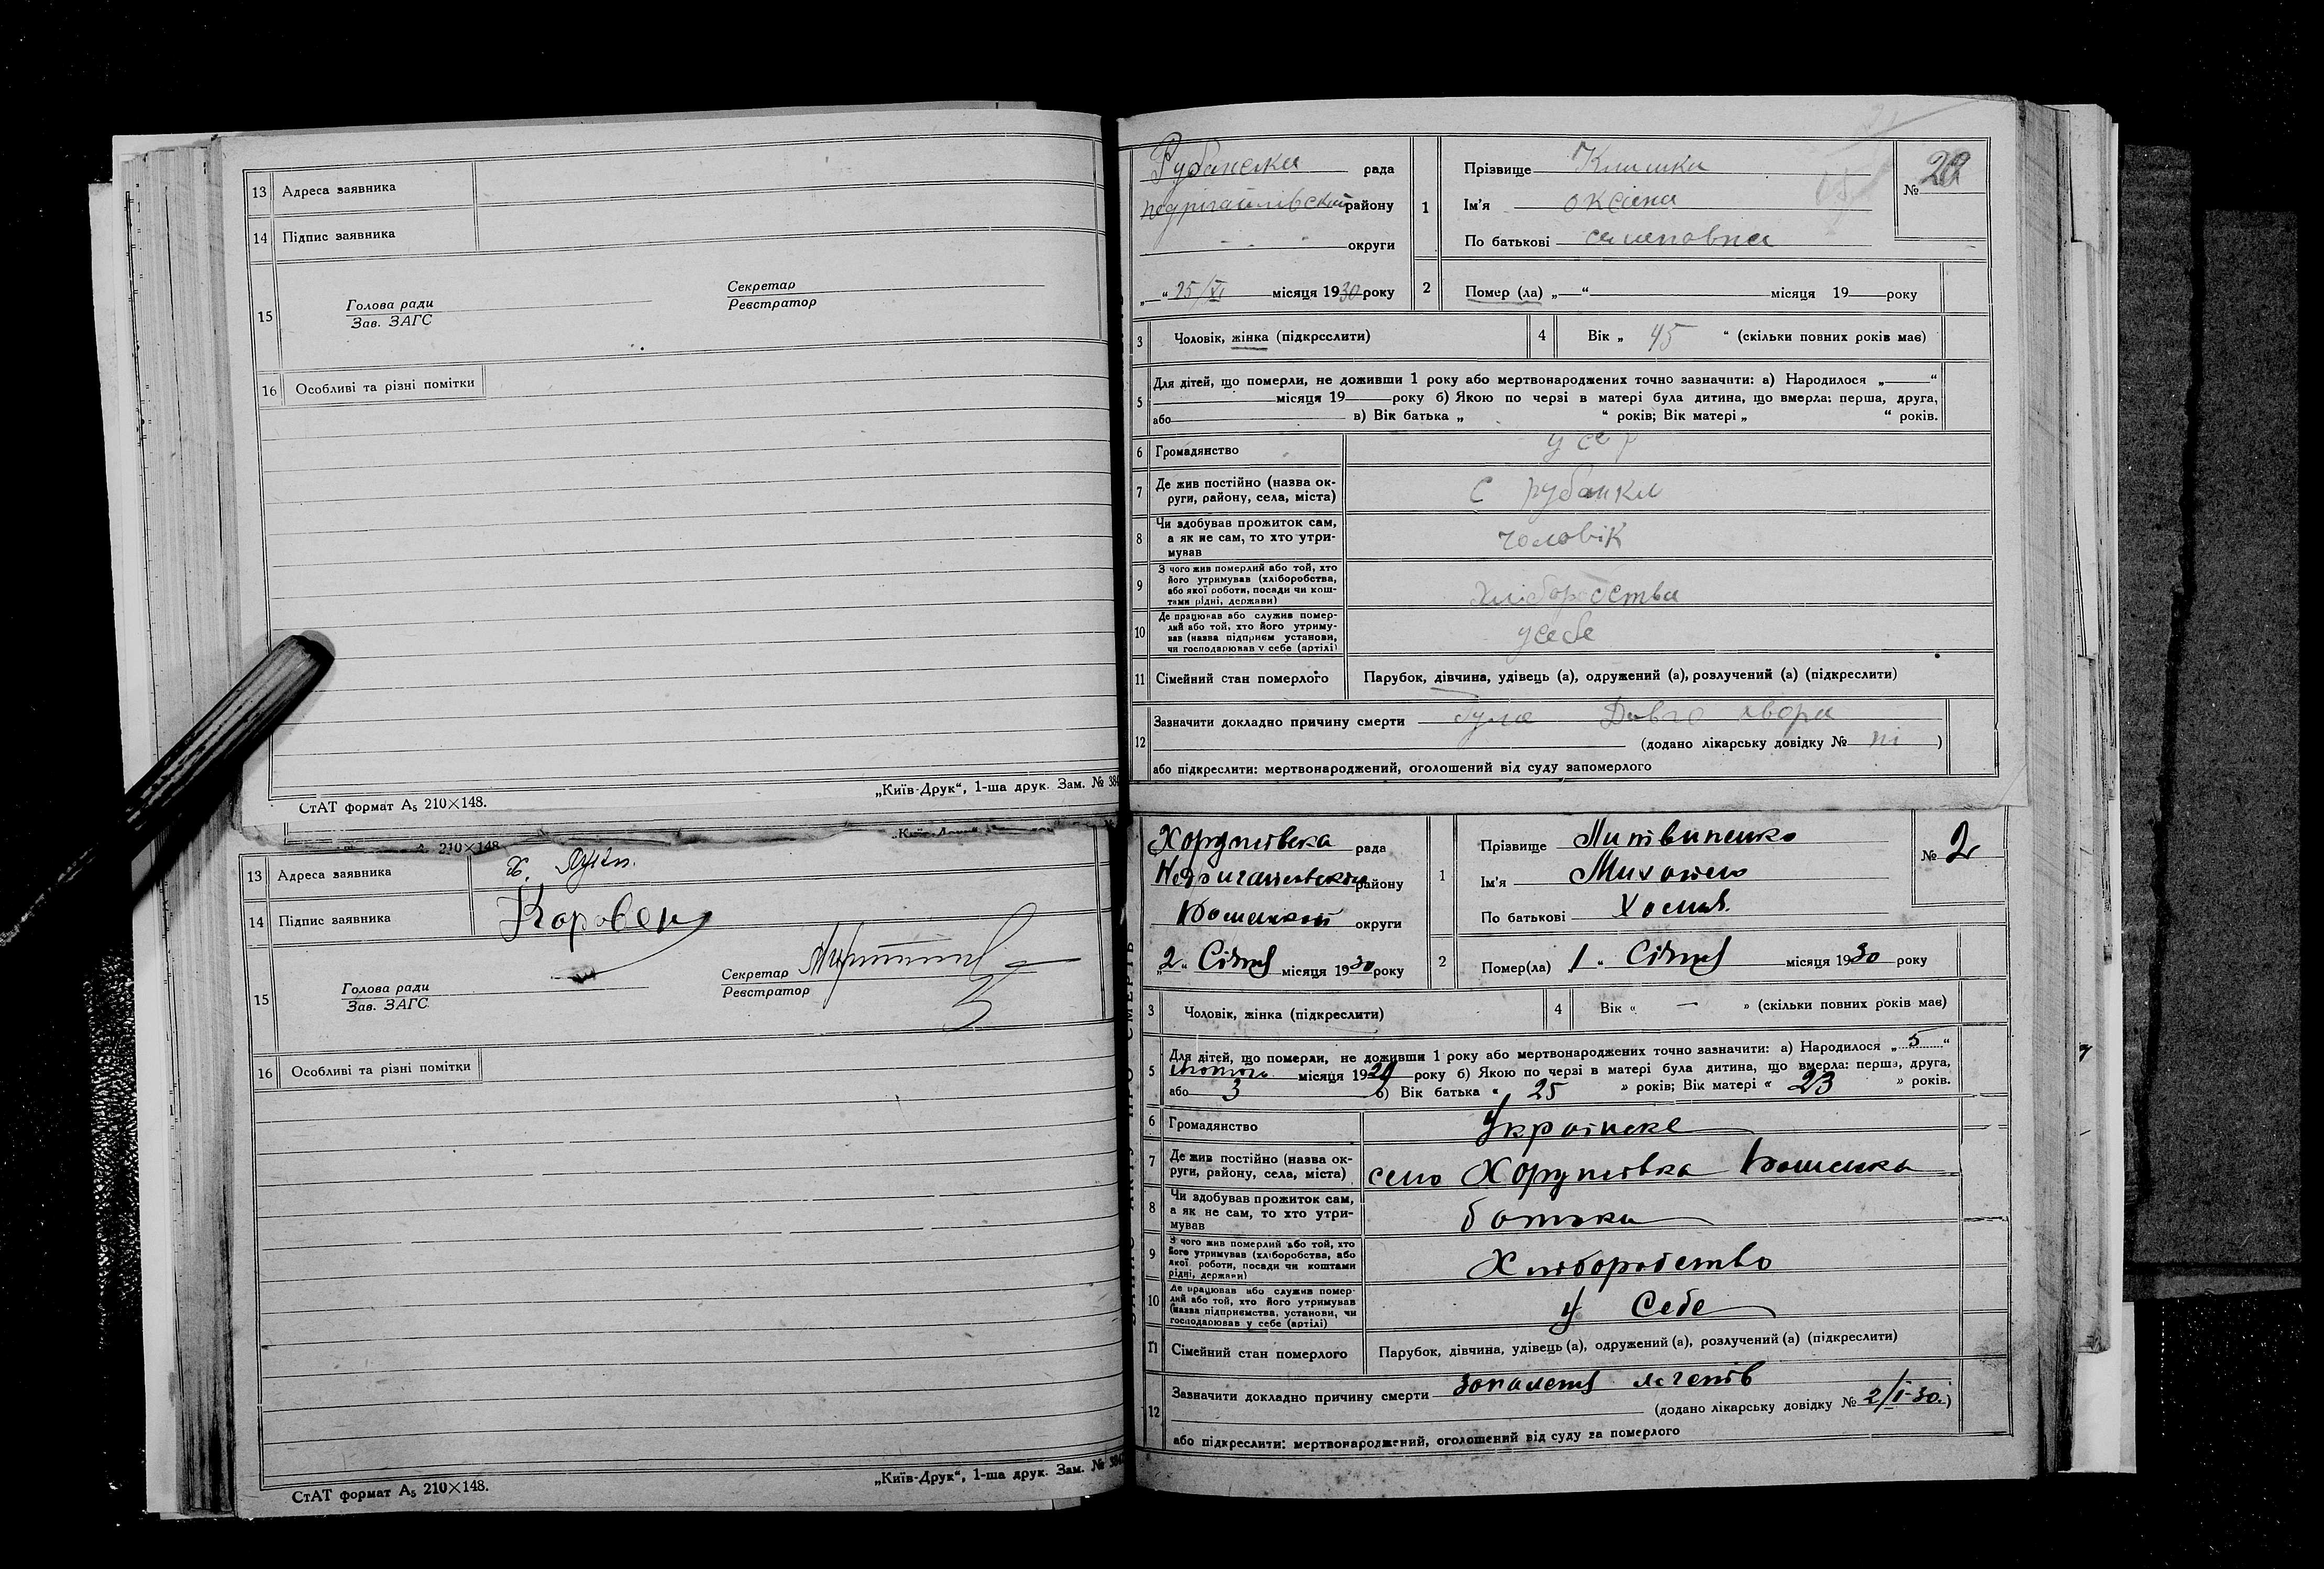 13 Адреса заявника
14 Підпис заявника
15 Голова ради
Зав. ЗАГС
Секретар
Реєстратор
16 Особливі та різні помітки
СтАТ формат А₅ 210×148.
„Київ-Друк“, 1-ша друк. Зам. № 384
210×148
13 Адреса заявника х.
14 Підпис заявника
15 Голова ради
Зав. ЗАГС
Секретар
Реєстратор
16 Особливі та різні помітки
СтАТ формат А₅ 210×148.
„Київ-Друк“, 1-ша друк. Зам. № 384
рада
району
округи
„ “ 25/VI місяця 1930 року
1 Прізвище
Ім'я оксана
По батькові
№ 20
2 Помер (ла) „ “ місяця 19 року
3 Чоловік, жінка (підкреслити)
4 Вік „ 45 “ (скільки повних років має)
5 Для дітей, що померли, не доживши 1 року або мертвонароджених точно зазначити: а) Народилося „ “
місяця 19 року б) Якою по черзі в матері була дитина, що вмерла: перша, друга,
або в) Вік батька „ “ років; Вік матері „ “ років.
6 Громадянство усср
7 Де жив постійно (назва ок-
руги, району, села, міста) с рубанки
8 Чи здобував прожиток сам,
а як не сам, то хто утри-
мував чоловік
9 З чого жив померлий або той, хто
його утримував (хліборобства,
або якої роботи, посади чи кош-
тами рідні, держави) хліборобства
10 Де працював або служив помер-
лий або той, хто його утриму-
вав (назва підприєм установи,
чи господарював у себе (артілі) усебе
11 Сімейний стан померлого Парубок, дівчина, удівець (а), одружений (а), розлучений (а) (підкреслити)
12 Зазначити докладно причину смерти була Довго хвора
(додано лікарську довідку № ні )
або підкреслити: мертвонароджений, оголошений від суду запомерлого
Хорунівка рада
району
округи
„2“ Січня місяця 1930 року
1 Прізвище Литвиненко
Ім'я Михайло
По батькові Хомів.
№ 2
2 Помер(ла) „1“ Січня місяця 1930 року
3 Чоловік, жінка (підкреслити)
4 Вік “ — ” (скільки повних років має)
5 Для дітей, що померли, не доживши 1 року або мертвонароджених точно зазначити: а) Народилося „ 5 “
місяця 1929 року б) Якою по черзі в матері була дитина, що вмерла: перша, друга,
або 3 в) Вік батька “ 25 ” років; Вік матері “ 23 ” років.
6 Громадянство Українске
7 Де жив постійно (назва ок-
руги, району, села, міста) село Хорунівка
8 Чи здобував прожиток сам,
а як не сам, то хто утри-
мував батьки
9 З чого жив померлий або той, хто
його утримував (хліборобства, або
якої роботи, посади чи коштами
рідні, держави) Хліборобство
10 Де працював або служив помер-
лий або той, хто його утримував
(назва підприємства, установи, чи
господарював у себе (артілі) у Себе
11 Сімейний стан померлого Парубок, дівчина, удівець (а), одружений (а), розлучений (а) (підкреслити)
12 Зазначити докладно причину смерти запаленя легенів
(додано лікарську довідку № 2/I-30.)
або підкреслити: мертвонароджений, оголошений від суду за померлого